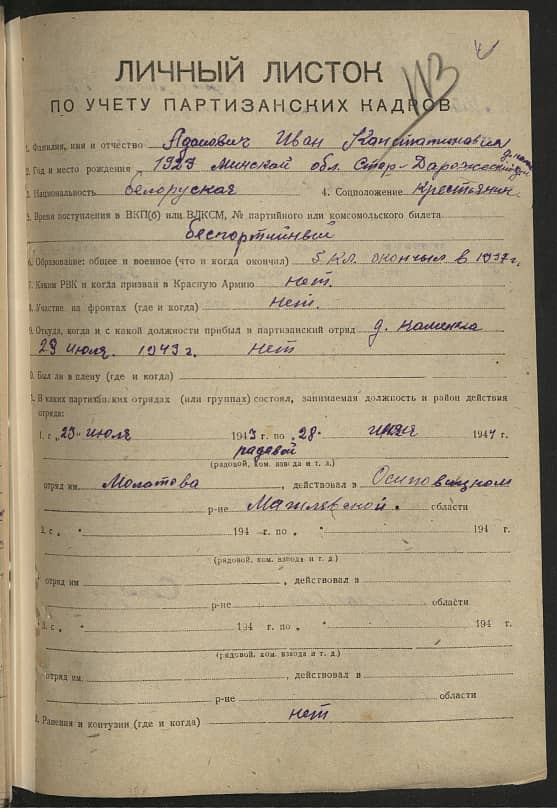 113
ЛИЧНЫЙ ЛИСТОК
ПО УЧЕТУ ПАРТИЗАНСКИХ КАДРОВ
1. Фамилия, имя и отчество Адамович Иван Канстатинович
2. Год и место рождения 1923 Минской обл. Стар-Дарожский
3. Национальность белоруская 4. Соцположение Крестьянин
5. Время поступления в ВКП(б) или ВЛКСМ, № партийного или комсомольского билета
беспортийный
6. Образование: общее и военное (что и когда окончил) 5 кл. окончыл в 1937 г.
7. Каким РВК и когда призван в Красную Армию нет.
8. Участие на фронтах (где и когда) нет.
9. Откуда, когда и с какой должности прибыл в партизанский отряд д. Каменка
23 июля. 1943 г. нет
0. Был ли в плену (где и когда)
1. В каких партизанских отрядах (или группах) состоял, занимаемая должность и район действия
отряда:
1. с „23" июля 1943 г. по „28" июня 1944 г.
радавой
(рядовой, ком. взвода и т. д.)
отряд им. Молатова, действовал в Осиповицком
р-не Магилевской. области
2. с „ " 194 г. по „ " 194 г.
(рядовой, ком. взвода и т. д.)
отряд им , действовал в
р-не области
3. с „ " 194 г. по „ " 194 г.
(рядовой, ком. взвода и т. д.)
отряд им. , действовал в
р-не области
2. Ранения и контузии (где и когда) нет